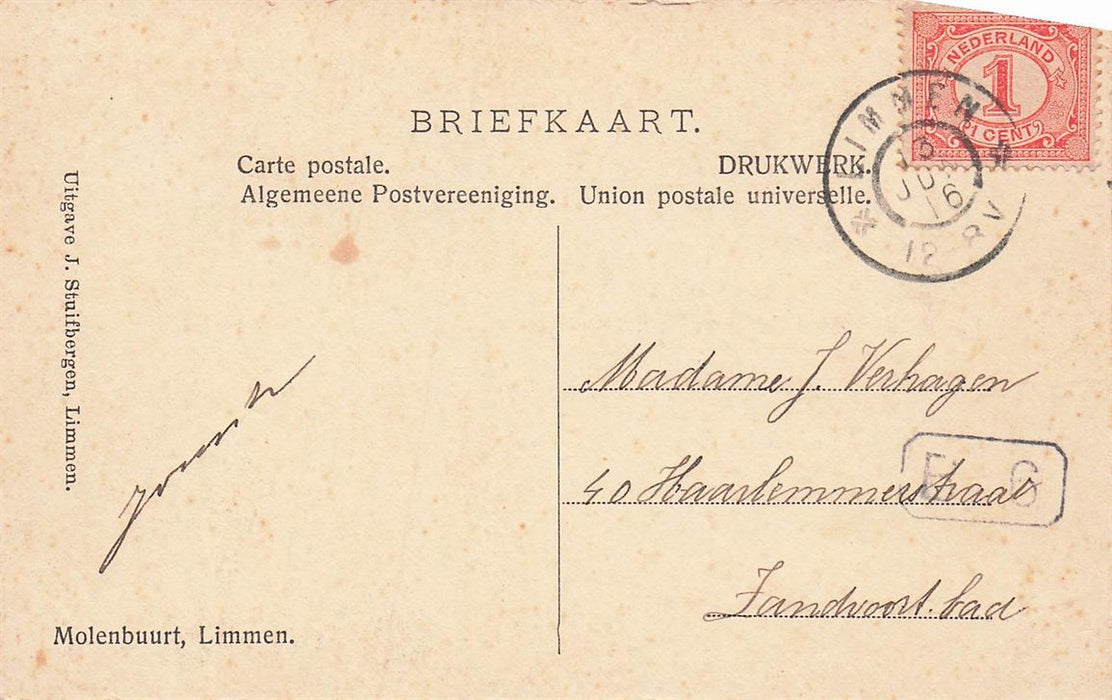 NEDERLAND
1
1 CENT
LIMMEN
16
12
BRIEFKAART.
Carte postale.
DRUKWERK.
Algemeene Postvereeniging. Union postale universelle.
Uitgave J. Stuifbergen, Limmen.
Madame J. Verhagen
40 Haarlemmerstraat
Zandvoort. bad
Molenbuurt, Limmen.